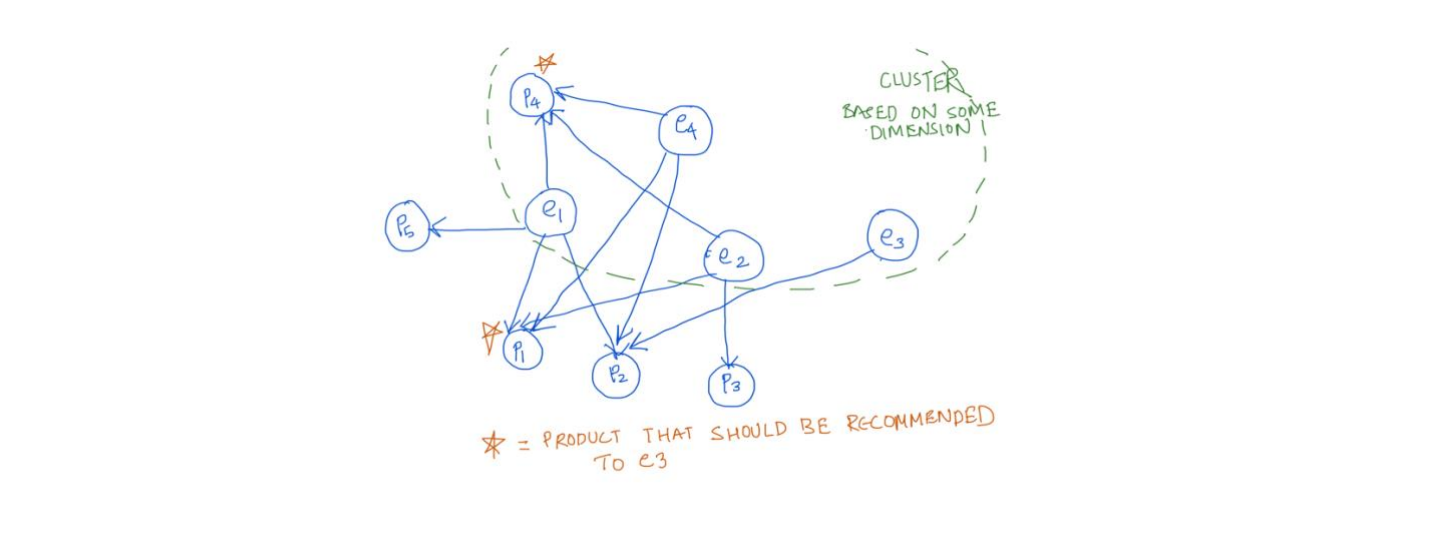 CLUSTER
BASED ON SOME
DIMENSION
P4
e4
e1
P5
e2
e3
P1
P2
P3
= PRODUCT THAT SHOULD BE RECOMMENDED
TO e3